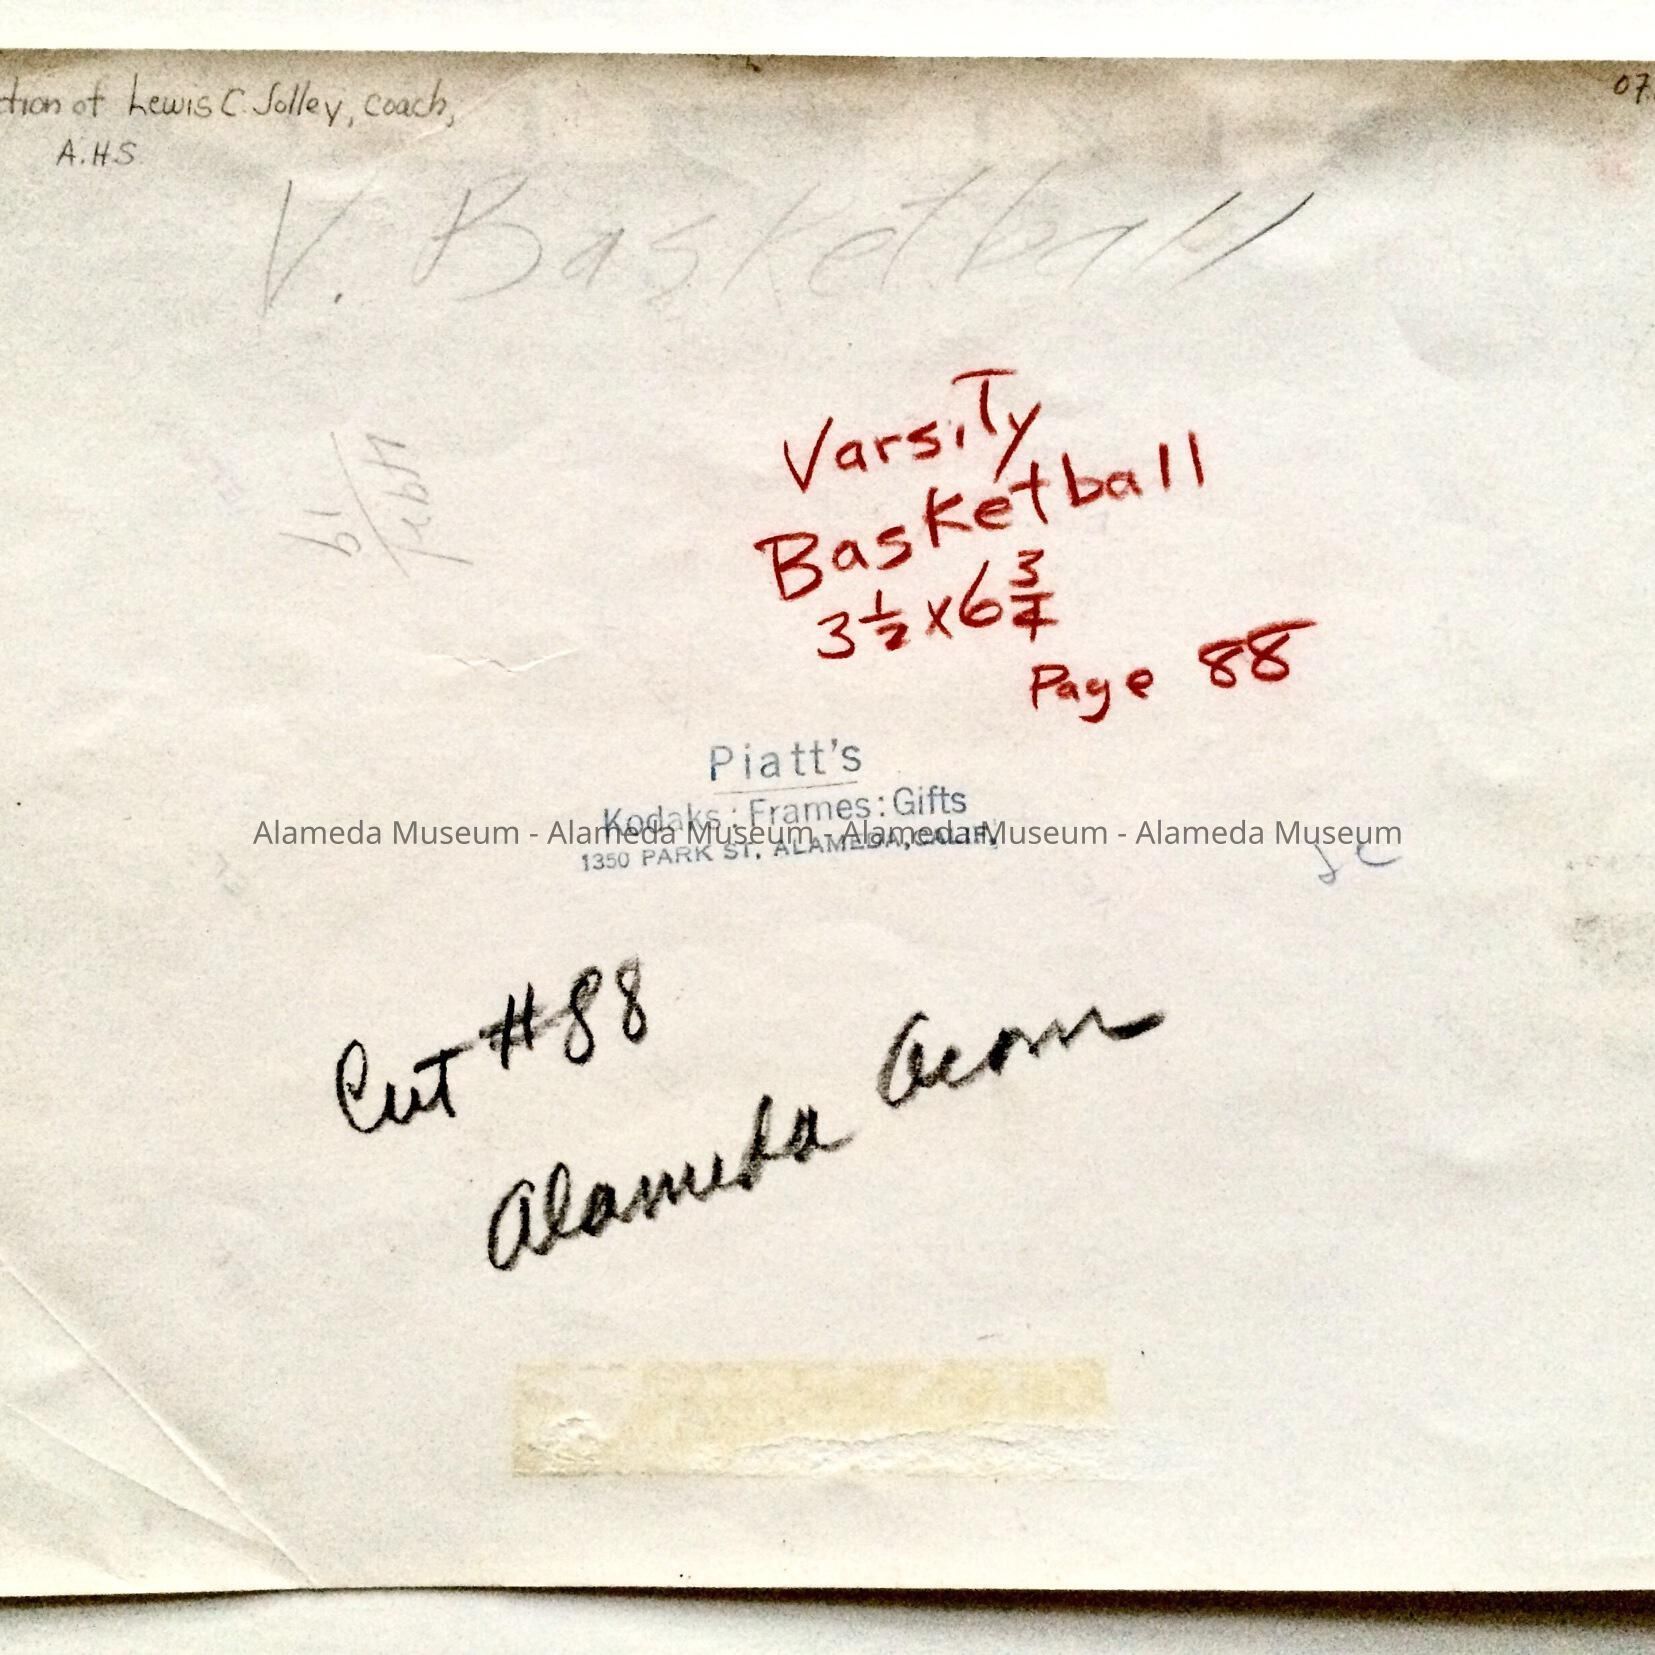 ction of Lewis C. Jolley, coach,
A.H.S.
07.
V. Basketball
Varsity
Basketball
3 1/2 x 6 3/4
Page 88
Piatt's
Kodaks : Frames : Gifts
1350 PARK ST. ALAMEDA, CALIF.
Alameda Museum - Alameda Museum - Alameda Museum - Alameda Museum
Cut #88
Alameda Acorn